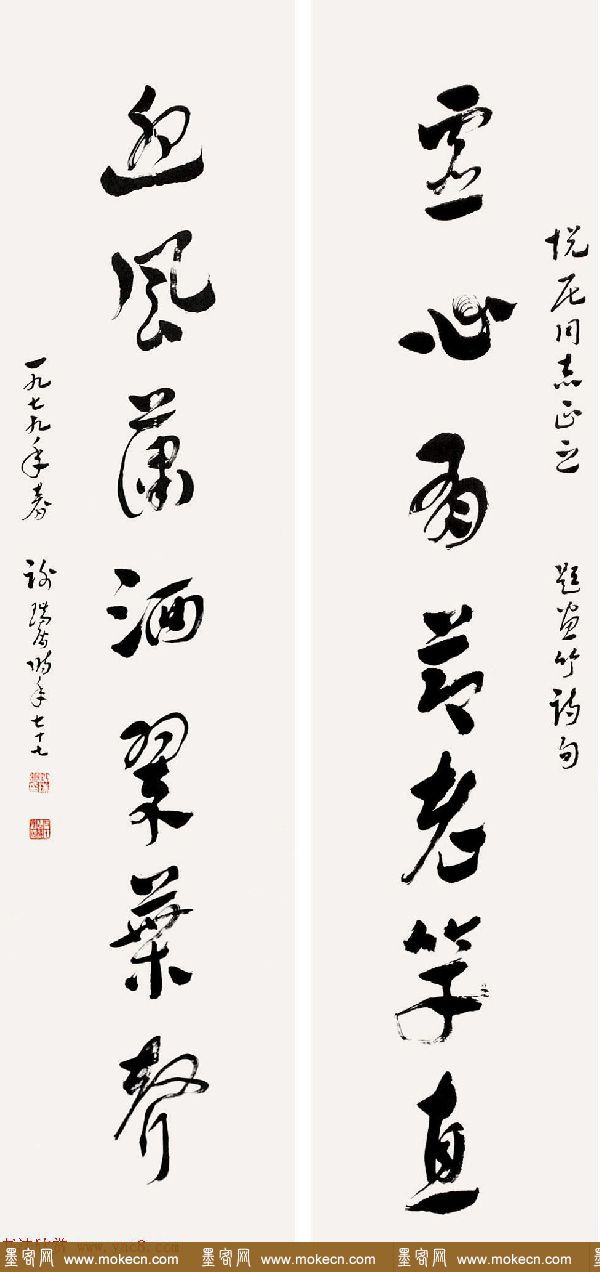 悦尼同志正之 题画竹诗句
虚心有节老竿直
迎风萧洒翠叶声
一九七九年春 谢瑞阶时年七十七
墨客网 www.mokecn.com 墨客网 www.mokecn.com 墨客网 www.mokecn.com